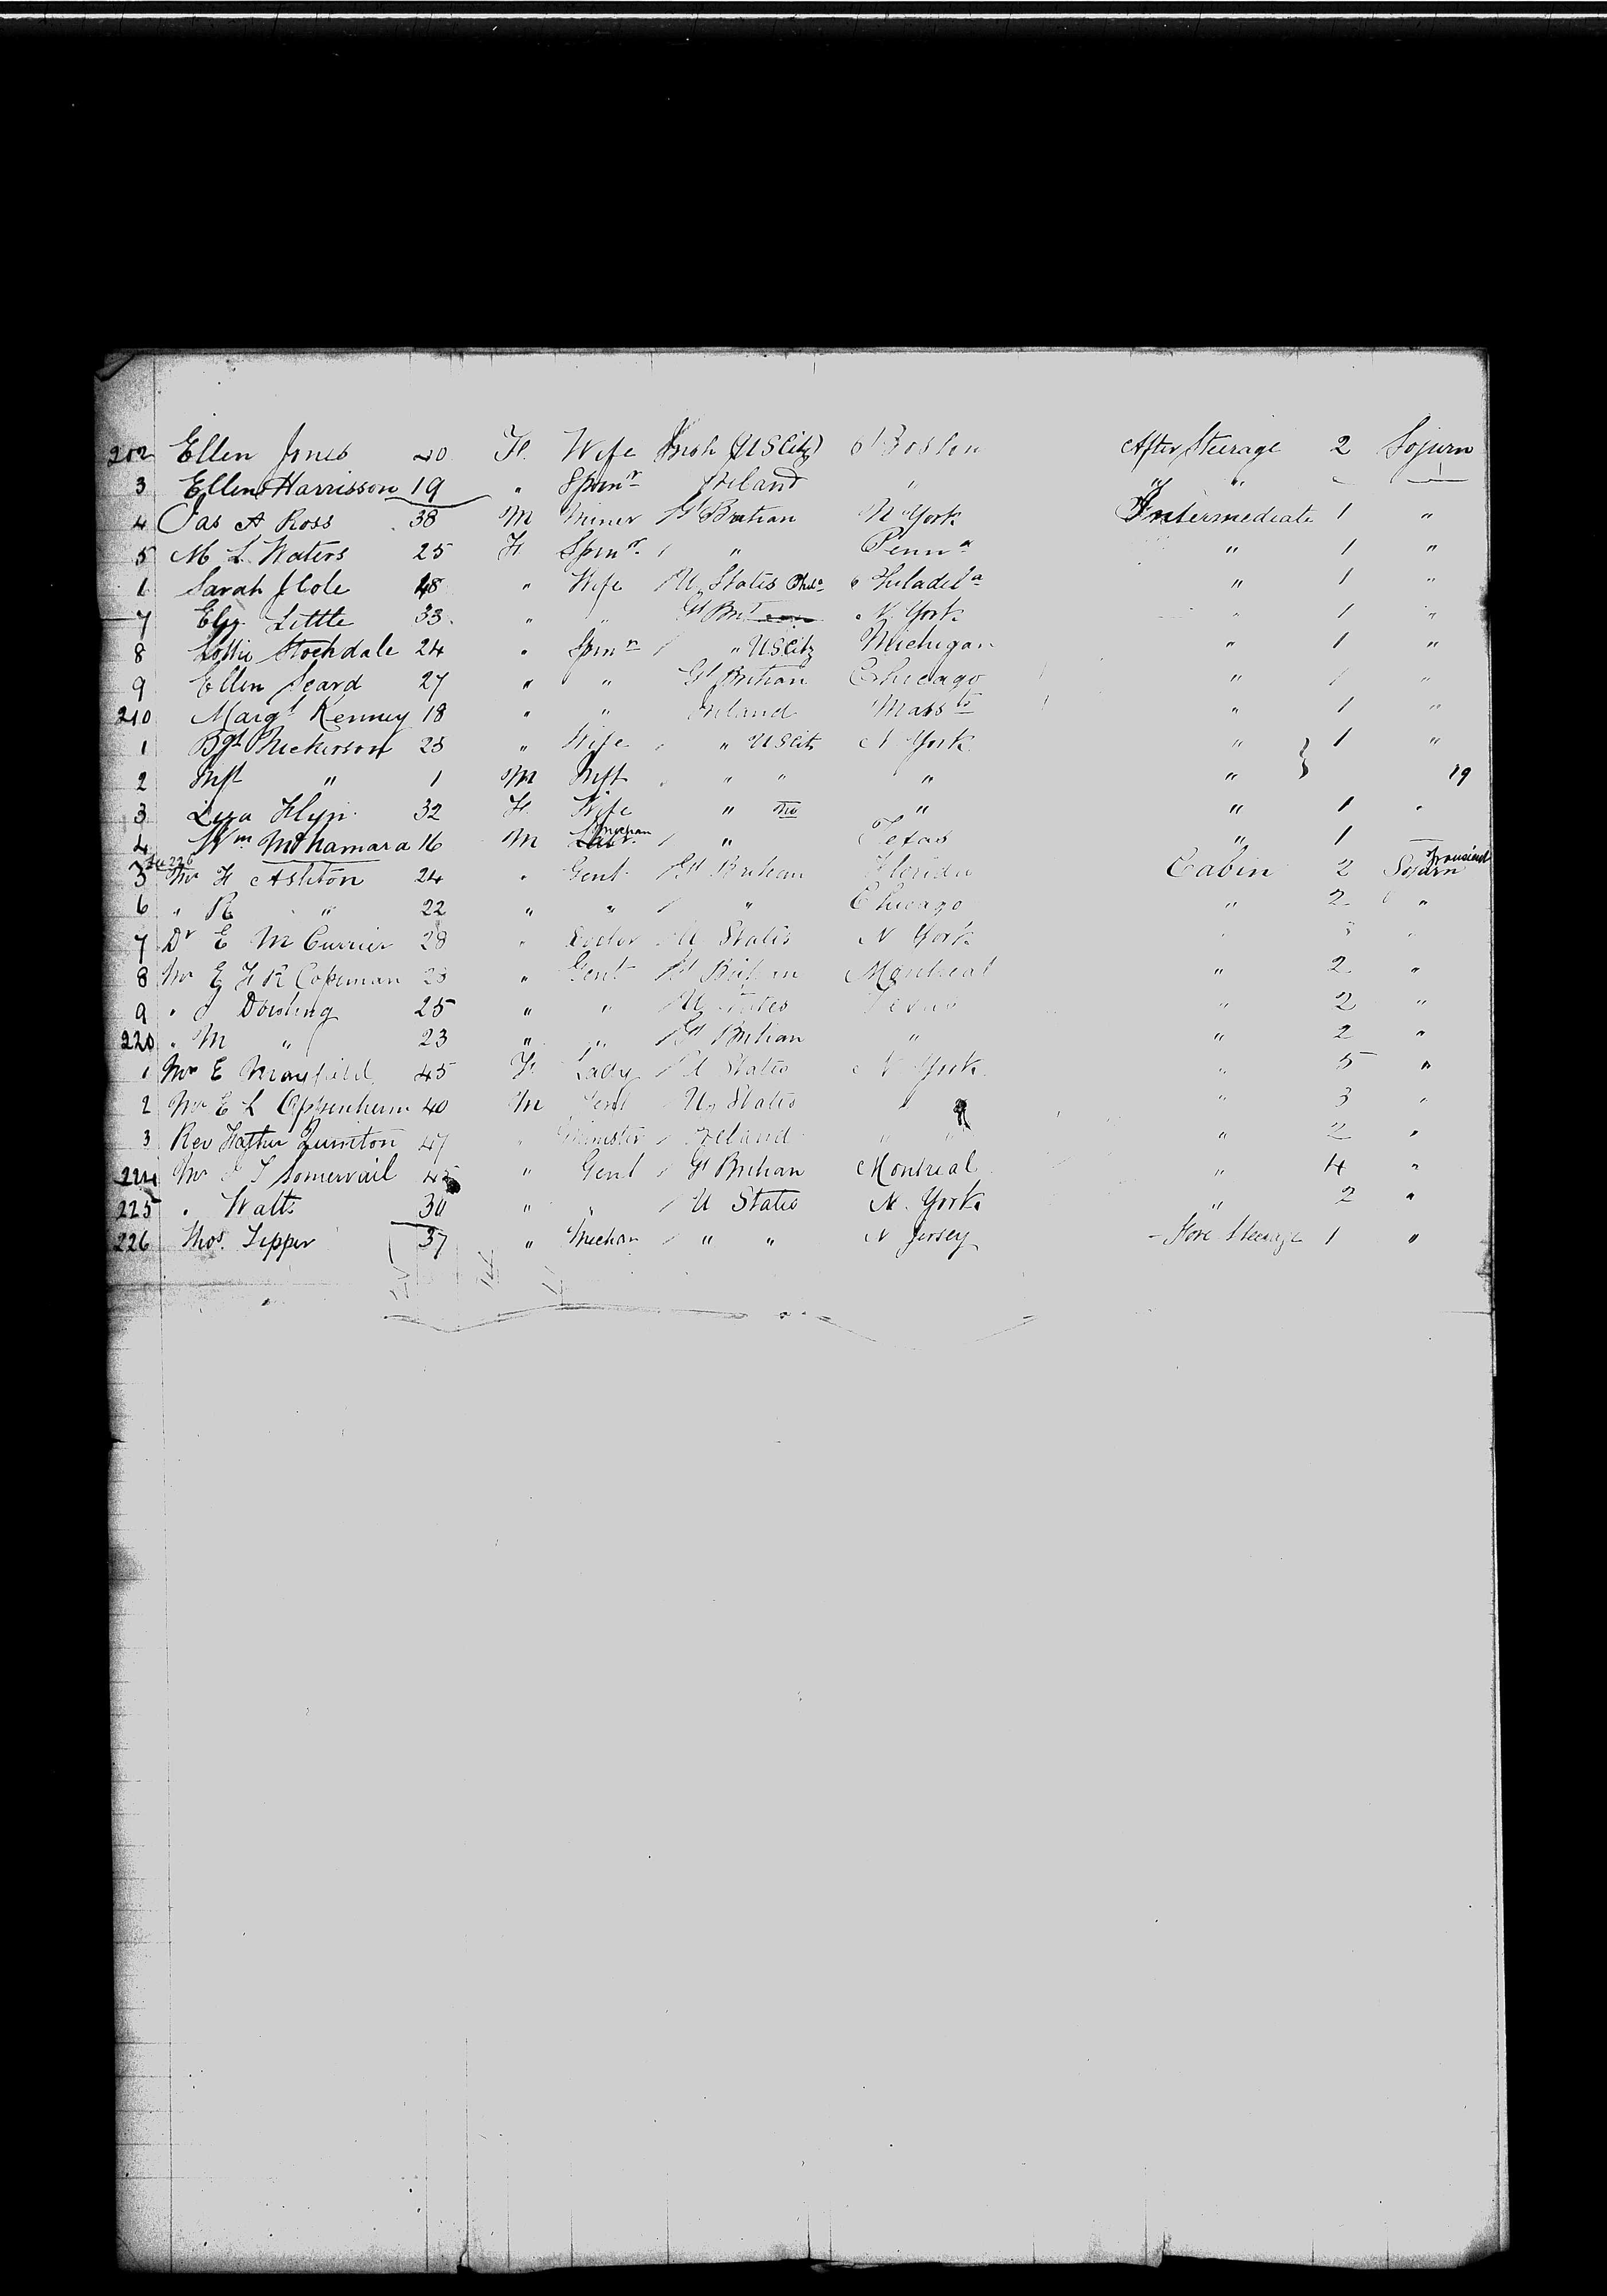 202 Ellen Jones 20 F. Wife Irish (US Citz) Boston After Steerage 2 Sojurn
3 Ellen Harrisson 19 " Spinr Ireland " " " "
4 Jas A Ross 38 M Miner Gt Britian N York Intermediate 1 "
5 M L Waters 25 F Spinr " Penna " 1 "
Sarah J Cole 48 " Wife U States Philadela " 1 "
7 Eliz Little 33 " " Gt Brit N. York " 1 "
8 Lottie Stockdale 24 " Spinr " US Citz Michigan " 1 "
9 Ellen Seard 27 " " Gt Britian Chicago " 1 "
210 Margt Kenney 18 " " Ireland Massts " 1 "
1 Bgt Nickerson 23 " Wife " US Citz N York " 1 "
2 Inft " 1 M Inft " " " " 19
3 Liza Flyn 32 F. Wife " " " 1 "
4 Wm McNamara 16 M " Texas " 1
5 Mr H Ashton 24 " Gent Gt Britian Florida Cabin 2 Sojurn
6 " R " 22 " " " Chicago " 2 "
7 Dr E M Currier 28 " Doctor U States N York " 3 "
8 Mr E F R Copeman 23 " Gent Gt Britian Montreal " 2 "
9 " J Dowling 25 " " U States Texas " 2 "
220 " M " 23 " " Gt Britian " " 2 "
1 E Mayfield 45 F. Lady U States N York " 5 "
2 Mr E L Oppenheim 40 M Gent U. States " " 3 "
3 Rev Father 47 " Minister Ireland " " " 2 "
224 Mr Somervail 45 " Gent Gt Britian Montreal " 4 "
225 " Watts 30 " " U States N. York " 2 "
226 Thos. Tepper 37 " Mechan " " N Jersey Fore Steerage 1 "